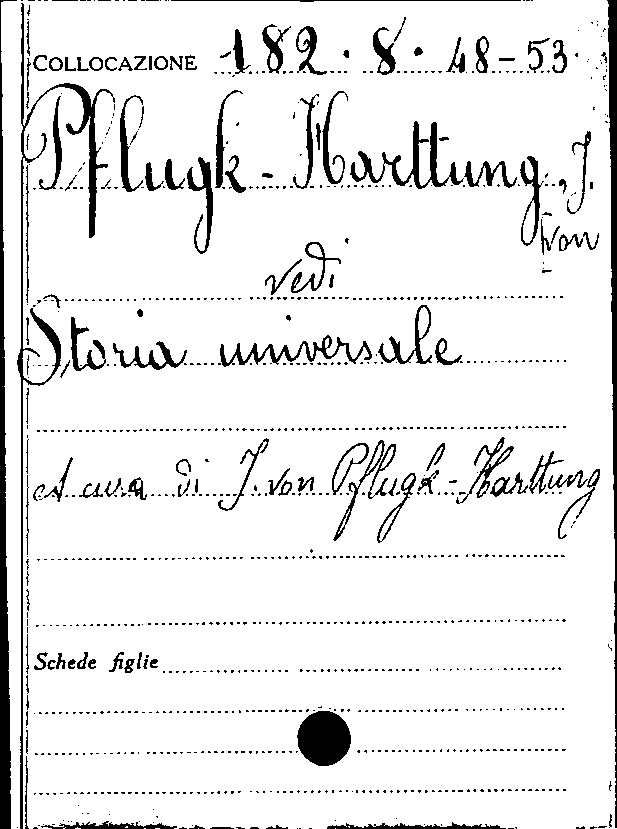 COLLOCAZIONE 182.8.48-53.
Pflugk-Harttung, J.
von
vedi
Storia universale
A cura di J. von Pflugk-Harttung
Schede figlie